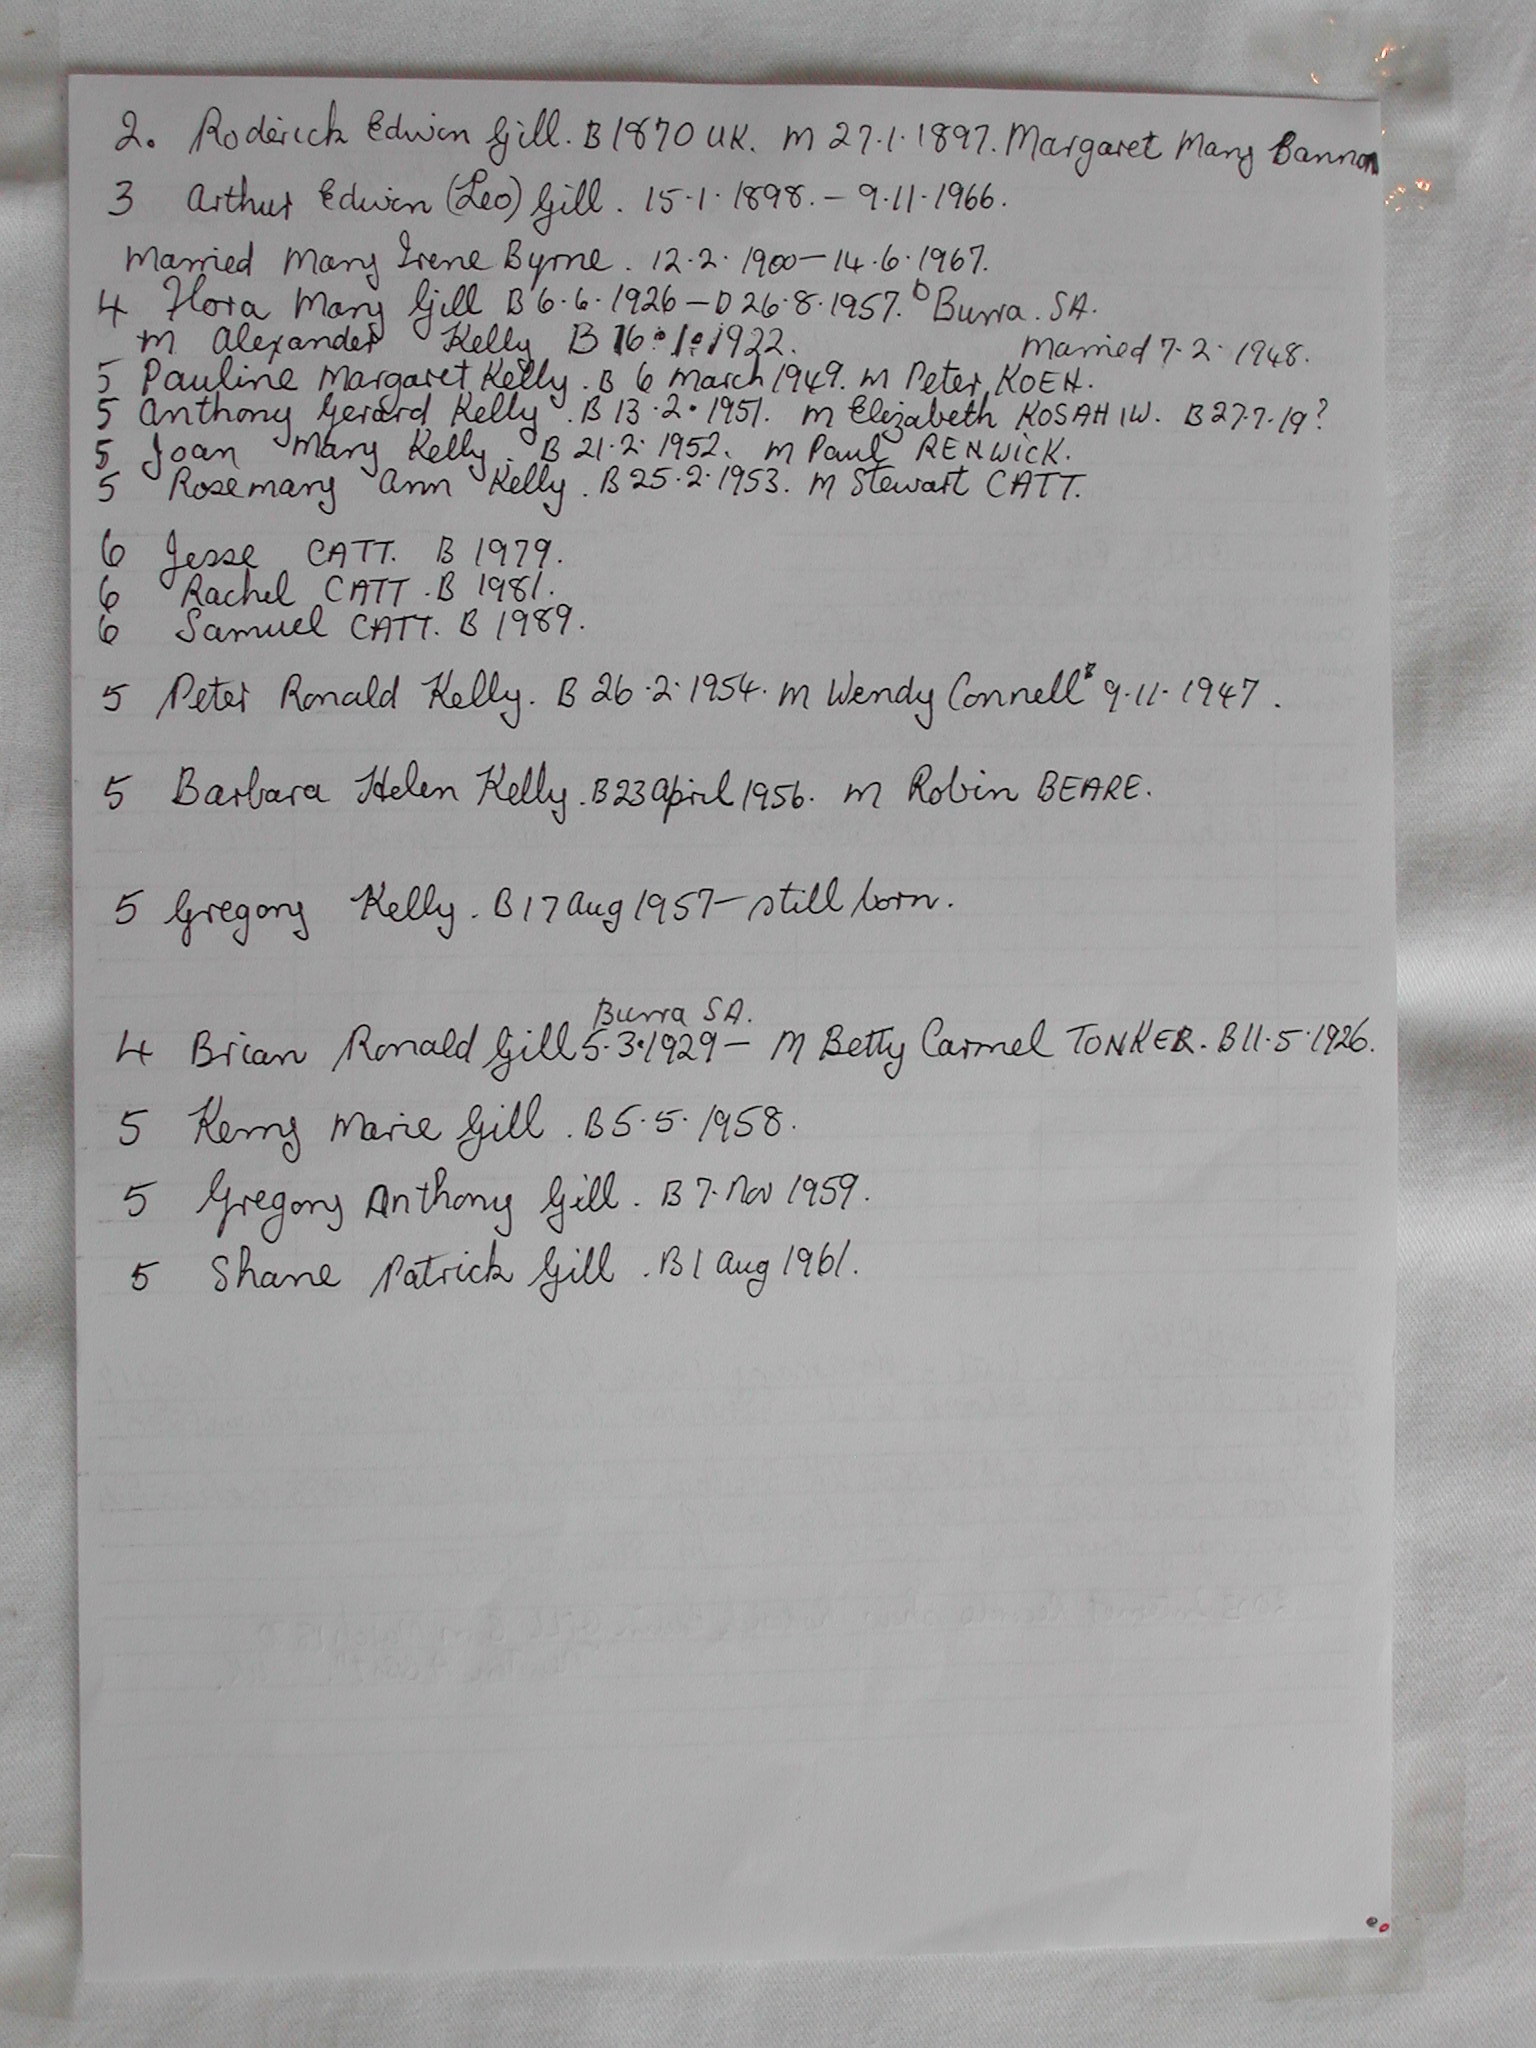 2. Roderick Edwin Gill. B 1870 UK. M 27.1.1897. Margaret Mary Bannon
3 Arthur Edwin (Leo) Gill. 15.1.1898. – 9.11.1966.
Married Mary Irene Byrne. 12.2.1900 – 14.6.1967.
4 Flora Mary Gill B 6.6.1926 – D 26.8.1957. b Burra. SA.
m Alexander Kelly B 16.1.1922. Married 7.2.1948.
5 Pauline Margaret Kelly. B 6 March 1949. M Peter KOEH.
5 Anthony Gerard Kelly. B 13.2.1951. M Elizabeth KOSAHIW. B 27.7.19?
5 Joan Mary Kelly. B 21.2.1952. M Paul RENWICK.
5 Rosemary Ann Kelly. B 25.2.1953. M Stewart CATT.
6 Jesse CATT. B 1979.
6 Rachel CATT. B 1981.
6 Samuel CATT. B 1989.
5 Peter Ronald Kelly. B 26.2.1954. M Wendy Connell B 9.11.1947.
5 Barbara Helen Kelly. B 23 April 1956. M Robin BEARE.
5 Gregory Kelly. B 17 Aug 1957 – still born.
Burra SA.
4 Brian Ronald Gill 5.3.1929 – M Betty Carmel TONKER. B 11.5.1926.
5 Kerry Marie Gill. B 5.5.1958.
5 Gregory Anthony Gill. B 7. Nov 1959.
5 Shane Patrick Gill. B 1 Aug 1961.